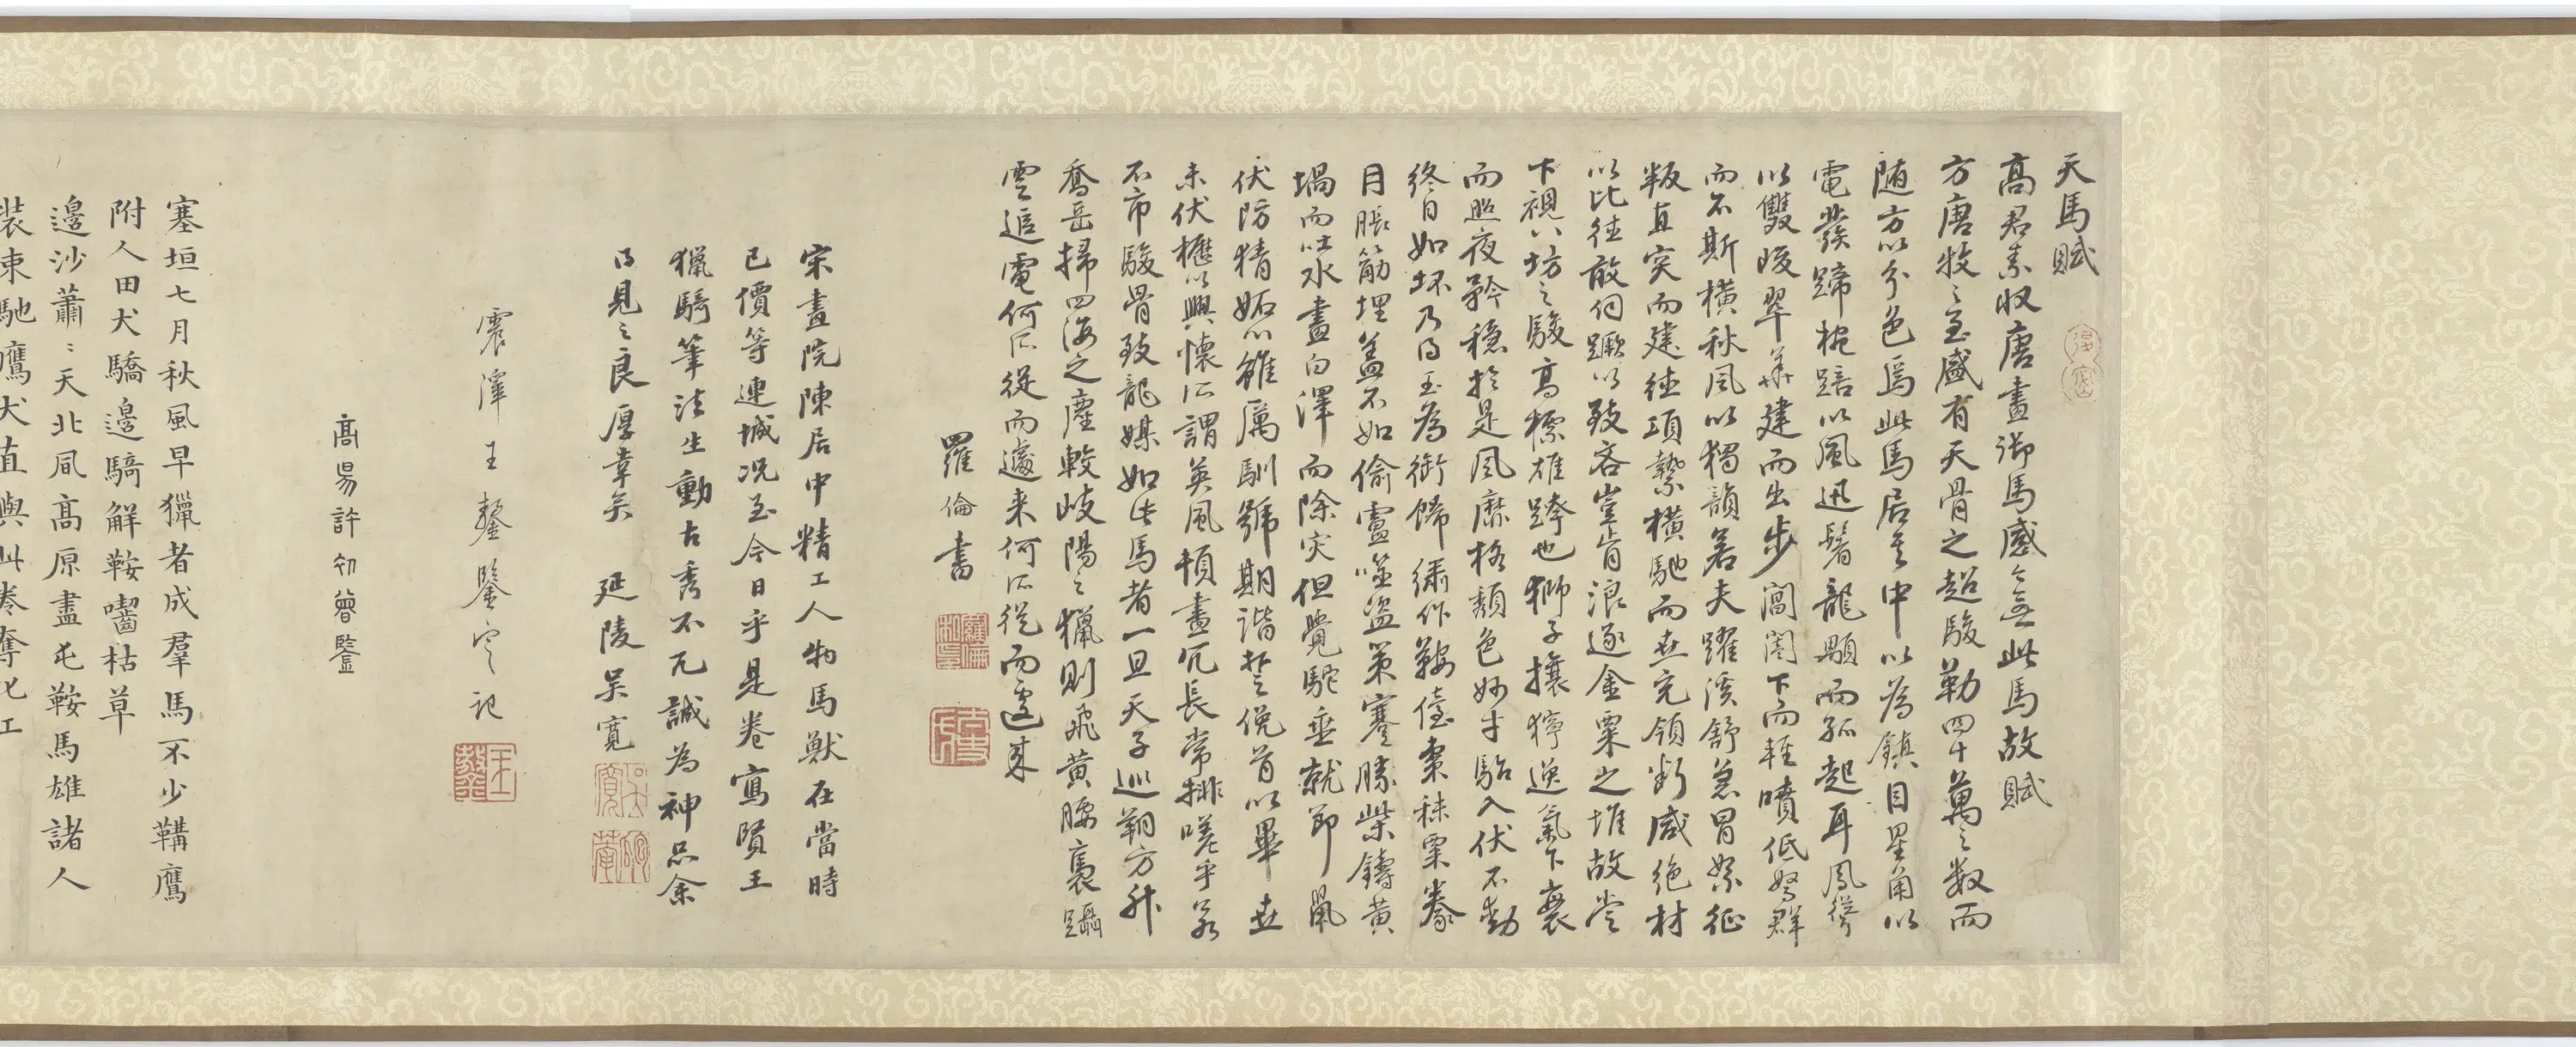 天馬賦
高君素收唐畫御馬感今無此馬故賦
方唐牧之至盛有天骨之超駿勒四十萬之數而
随方以分色焉此馬居其中以為鎮目星角以
電發蹄椀踣以風迅鬐龍顒而孤起耳鳳聳
以雙峻翠華建而出步閶闔下而輕噴低駑群
而不斯橫秋風以獨韻若夫躍溪舒急冒絮征
叛直突而建德項縶橫馳而世充領斷咸絕材
以比德敢伺蹶以致吝豈肯浪逐金粟之堆故嘗
下視八坊之駿高標雄跨也獅子攘獰逸氣下衰
而照夜矜穩於是風靡格頹色妙才駘入伏不動
終日如坏乃得玉為銜飾繡作鞍儓棗秣粟豢
月脹筋埋蓋不如偷盧噬盜策蹇勝柴鑄黃
堝而吐水畫白澤而除灾但覺駝垂就節鼠
伏防猜妬心雖厲馴號期諧楚俛首以畢世
未伏櫪以興懷所謂英風頓盡冗長常排嗟乎若
不市駿骨致龍媒如此馬者一旦天子巡朔方升
喬岳掃四海之塵較岐陽之獵則飛黃腰褭躡
雲追電何所從而遽来何所從而遽來
羅倫書
羅倫
宋畫院陳居中精工人物馬獸在當時
已價等連城况至今日乎是卷寫賢王
獵騎筆法生動古秀不凡誠為神品余
得見之良厚幸矣 延陵吴寬
吴寬
震澤王鏊鑒定記
王鏊
高昜許初曾鑒
塞垣七月秋風早獵者成羣馬不少鞲鷹
附人田犬驕邊騎解鞍嚙枯草
邊沙蕭﹕天北風高原盡屯鞍馬雄諸人
装束馳鷹犬直與此卷奪化工